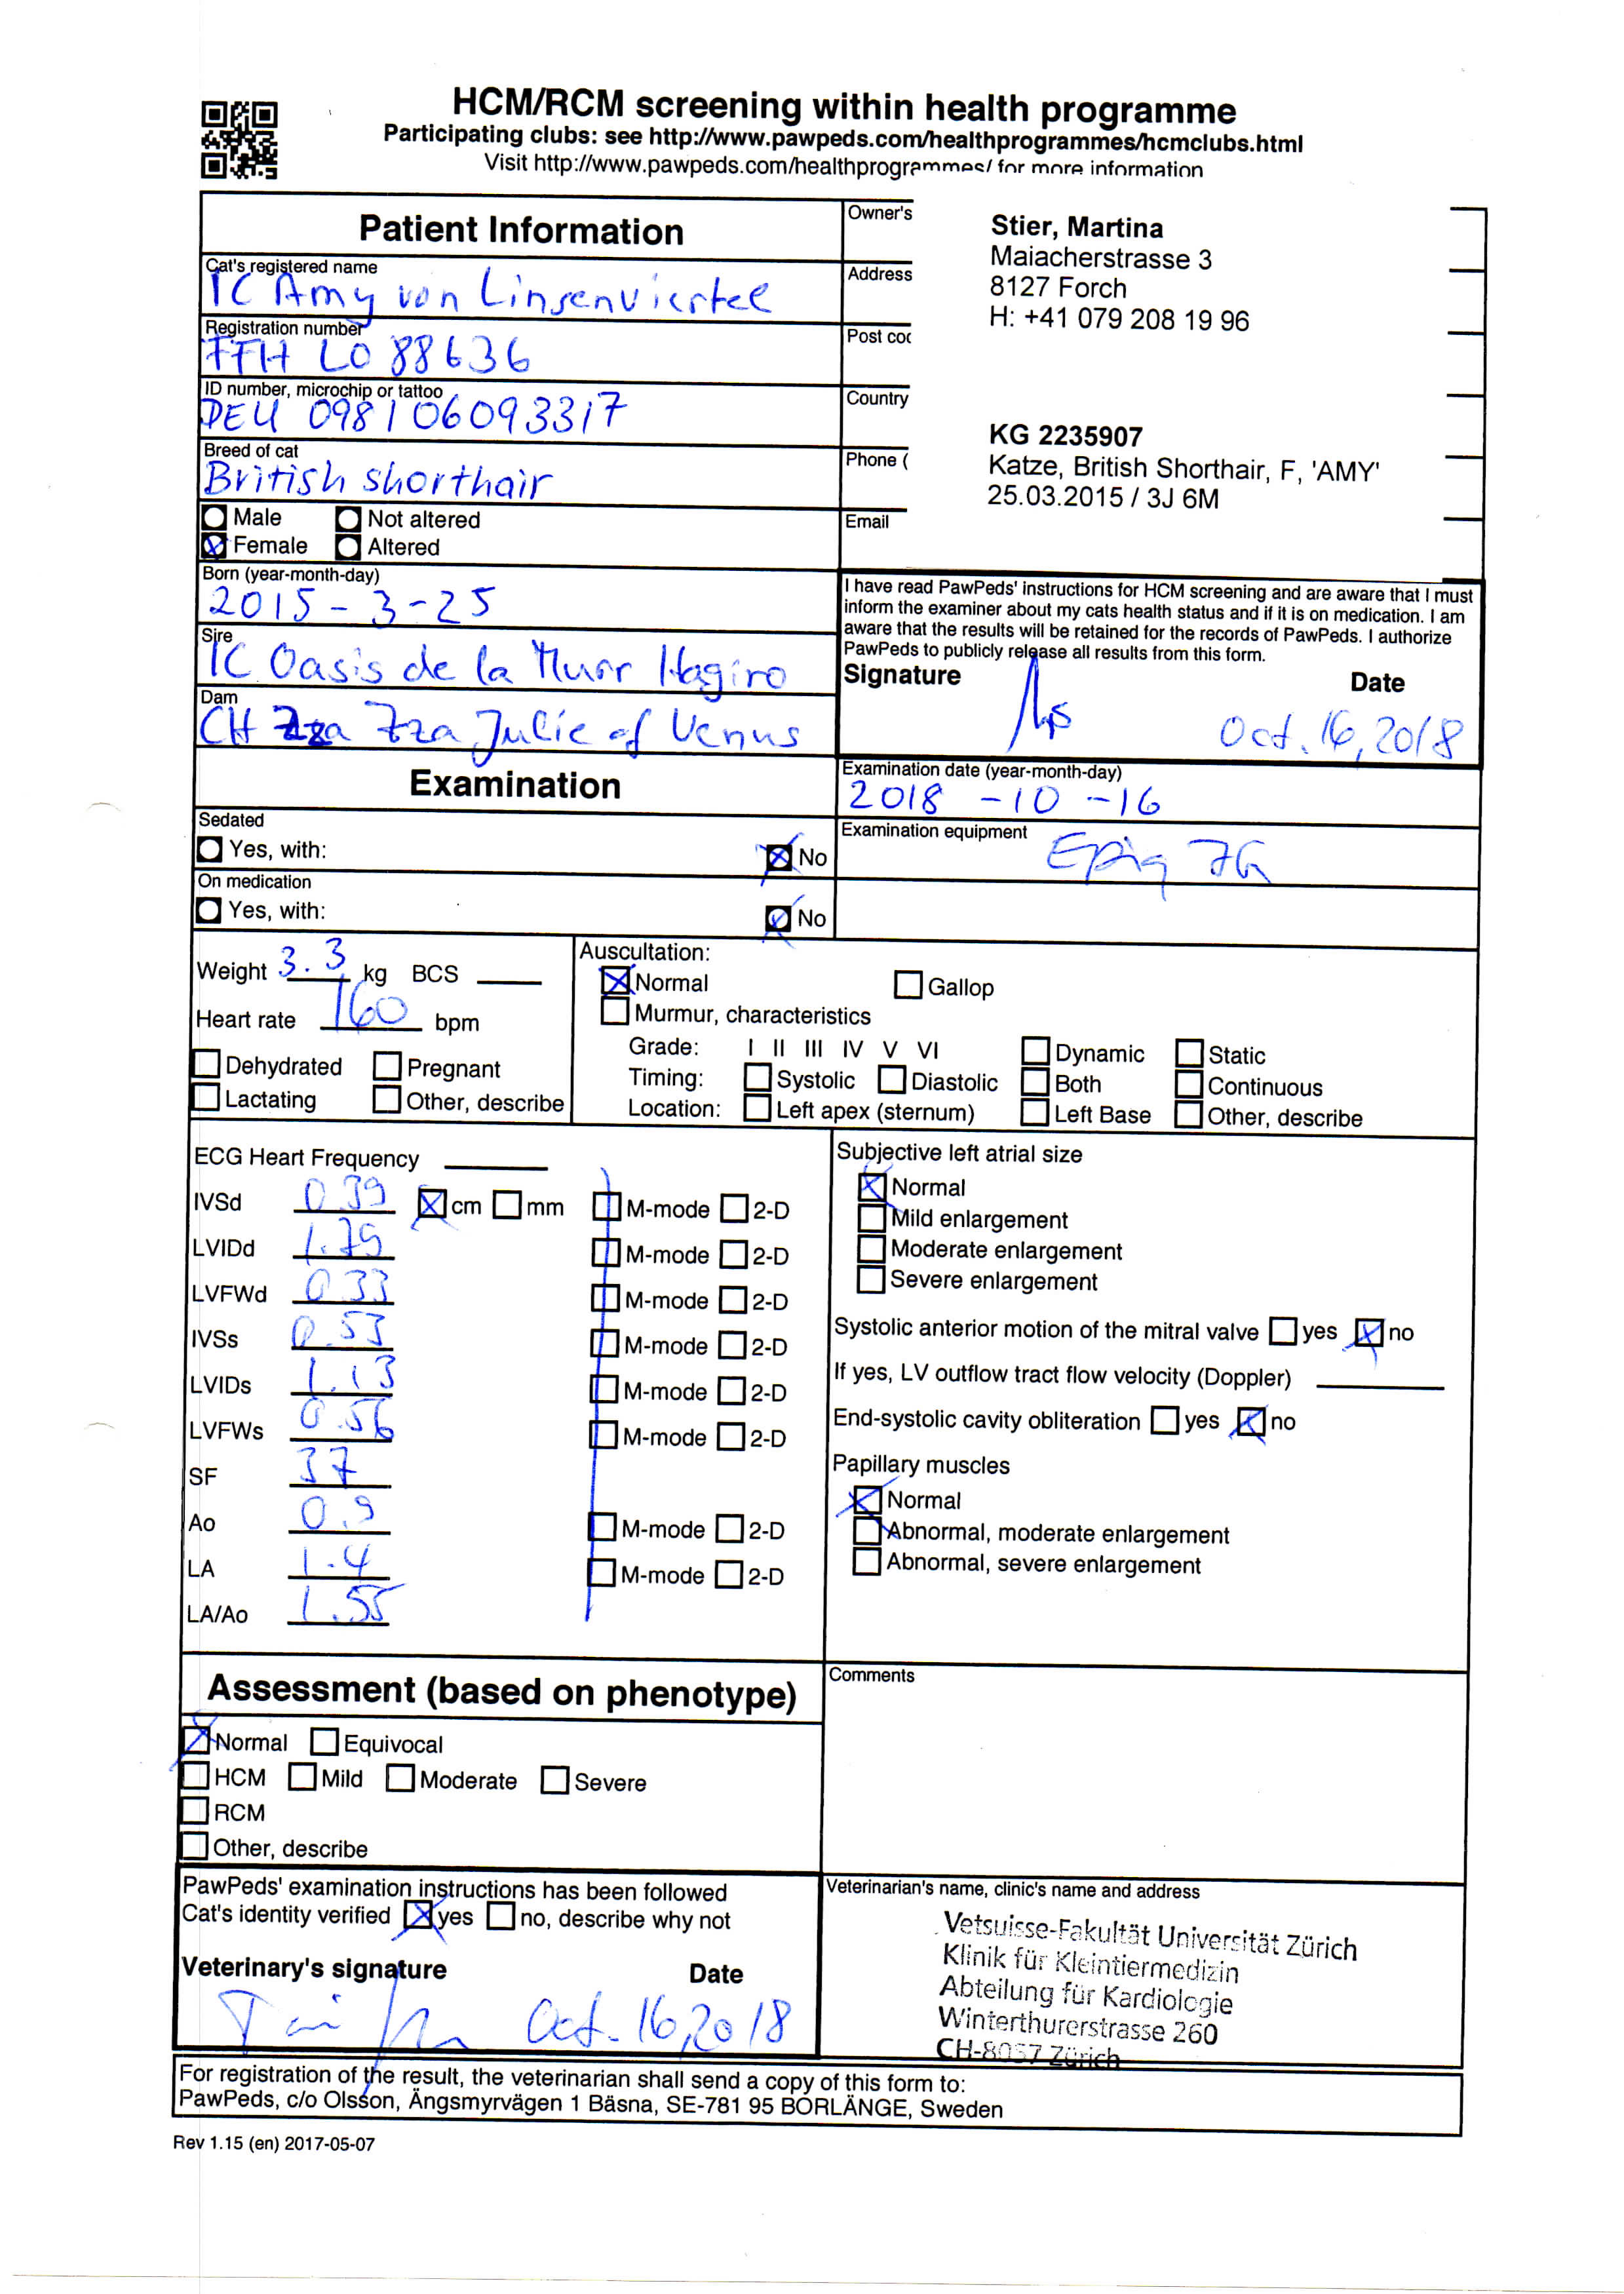 HCM/RCM screening within health programme
Participating clubs: see http://www.pawpeds.com/healthprogrammes/hcmclubs.html
Visit http://www.pawpeds.com/healthprogrammes/ for more information
Patient Information
Cat's registered name
IC Amy von Linsenviertel
Registration number
FFH LO 88636
ID number, microchip or tattoo
DEU 098106093317
Breed of cat
British shorthair
Male Not altered
Female Altered
Born (year-month-day)
2015-3-25
Sire
IC Oasis de la Murr Hagiro
Dam
CH Zza Julie of Venus
Owner's
Address
Post coc
Country
Phone (
Email
Stier, Martina
Maiacherstrasse 3
8127 Forch
H: +41 079 208 19 96
KG 2235907
Katze, British Shorthair, F, 'AMY'
25.03.2015 / 3J 6M
I have read PawPeds' instructions for HCM screening and are aware that I must
inform the examiner about my cats health status and if it is on medication. I am
aware that the results will be retained for the records of PawPeds. I authorize
PawPeds to publicly release all results from this form.
Signature Date
Oct. 16, 2018
Examination
Examination date (year-month-day)
2018-10-16
Sedated
Yes, with: No
Examination equipment
Epiq 7G
On medication
Yes, with: No
Weight 3.3 kg BCS
Heart rate 160 bpm
Dehydrated Pregnant
Lactating Other, describe
Auscultation:
Normal Gallop
Murmur, characteristics
Grade: I II III IV V VI Dynamic Static
Timing: Systolic Diastolic Both Continuous
Location: Left apex (sternum) Left Base Other, describe
ECG Heart Frequency
IVSd 0.39 cm mm M-mode 2-D
LVIDd 1.79 M-mode 2-D
LVFWd 0.33 M-mode 2-D
IVSs 0.53 M-mode 2-D
LVIDs 1.13 M-mode 2-D
LVFWs 0.56 M-mode 2-D
SF 37
Ao 0.9 M-mode 2-D
LA 1.4 M-mode 2-D
LA/Ao 1.55
Subjective left atrial size
Normal
Mild enlargement
Moderate enlargement
Severe enlargement
Systolic anterior motion of the mitral valve yes no
If yes, LV outflow tract flow velocity (Doppler)
End-systolic cavity obliteration yes no
Papillary muscles
Normal
Abnormal, moderate enlargement
Abnormal, severe enlargement
Assessment (based on phenotype)
Normal Equivocal
HCM Mild Moderate Severe
RCM
Other, describe
Comments
PawPeds' examination instructions has been followed
Cat's identity verified yes no, describe why not
Veterinary's signature Date
Oct. 16, 2018
Veterinarian's name, clinic's name and address
Vetsuisse-Fakultät Universität Zürich
Klinik für Kleintiermedizin
Abteilung für Kardiologie
Winterthurerstrasse 260
CH-8057 Zürich
For registration of the result, the veterinarian shall send a copy of this form to:
PawPeds, c/o Olsson, Ängsmyrvägen 1 Bäsna, SE-781 95 BORLÄNGE, Sweden
Rev 1.15 (en) 2017-05-07